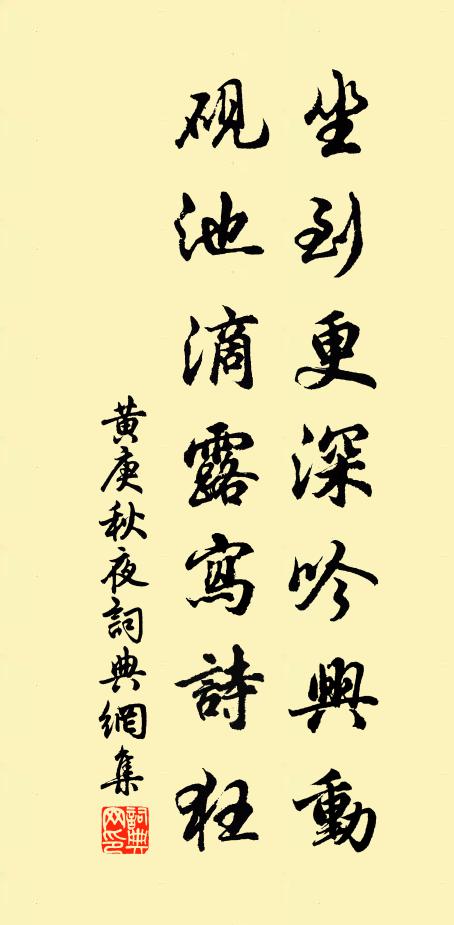 坐到更深吟興動
硯池滴露寫詩狂
黃庚秋夜詞典網集
詞典網印